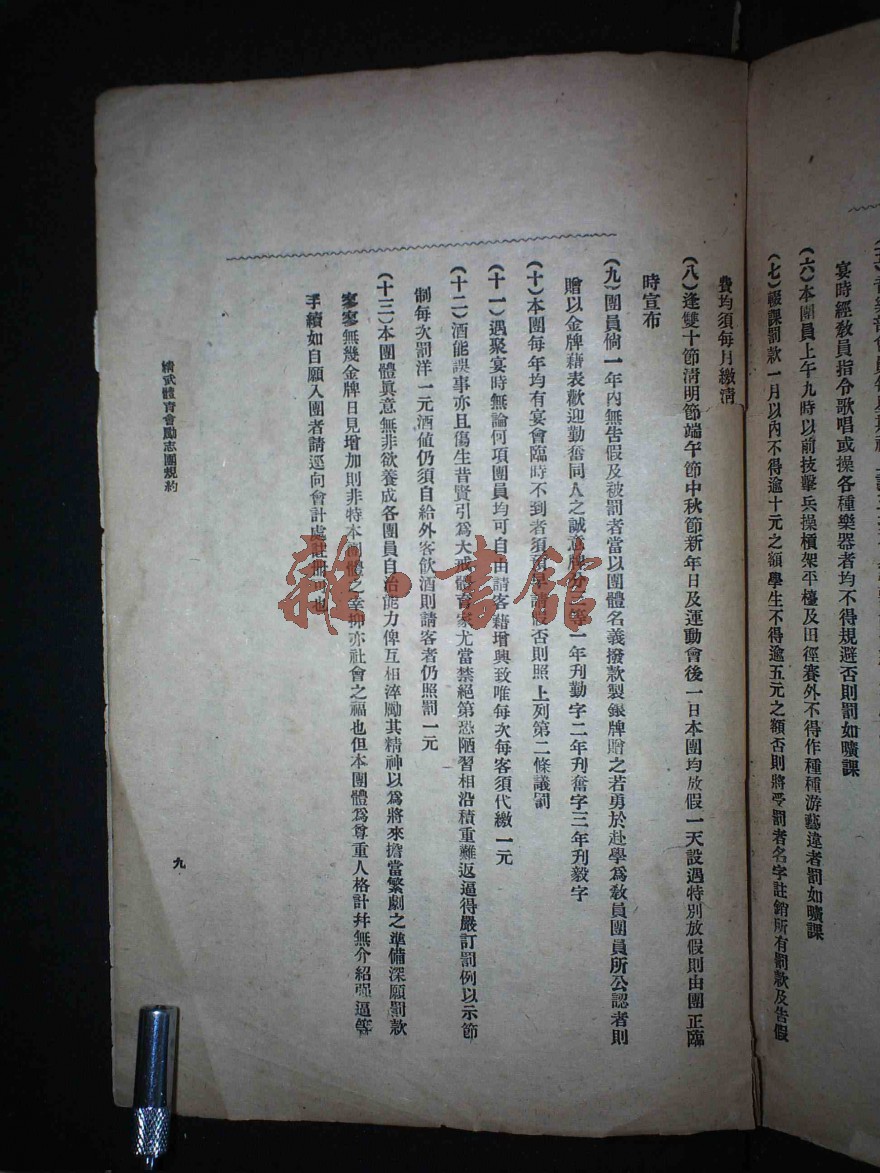 宴時經教員指令歌唱或操各種樂器者均不得規避否則罰如曠課
(六)本團員上午九時以前技擊兵操槓架平檯及田徑賽外不得作種種游藝違者罰如曠課
(七)輟課罰款一月以內不得逾十元之額學生不得逾五元之額否則將受罰者名字註銷所有罰款及告假
費均須每月繳淸
(八)逢雙十節淸明節端午節中秋節新年日及運動會後一日本團均放假一天設遇特別放假則由團正臨
時宣布
(九)團員倘一年內無告假及被罰者當以團體名義撥款製銀牌贈之若勇於赴學爲敎員團員所公認者則
贈以金牌藉表歡迎勤奮同人之誠意牌分三等一年刊勤字二年刊奮字三年刊毅字
(十)本團每年均有宴會臨時不到者須預早請假否則照上列第二條議罰
(十一)遇聚宴時無論何項團員均可自由請客藉增興致唯每次每客須代繳一元
(十二)酒能誤事亦且傷生昔賢引爲大戒體育家尤當禁絕第恐陋習相沿積重難返逼得嚴訂罰例以示節
制每次罰洋一元酒値仍須自給外客飮酒則請客者仍照罰一元
(十三)本團體眞意無非欲養成各團員自治能力俾互相淬勵其精神以爲將來擔當繁劇之準備深願罰款
寥寥無幾金牌日見增加則非特本團體之幸抑亦社會之福也但本團體爲尊重人格計幷無介紹强逼等
手續如自願入團者請逕向會計處註冊可也
精武體育會勵志團規約
九
雜·書館